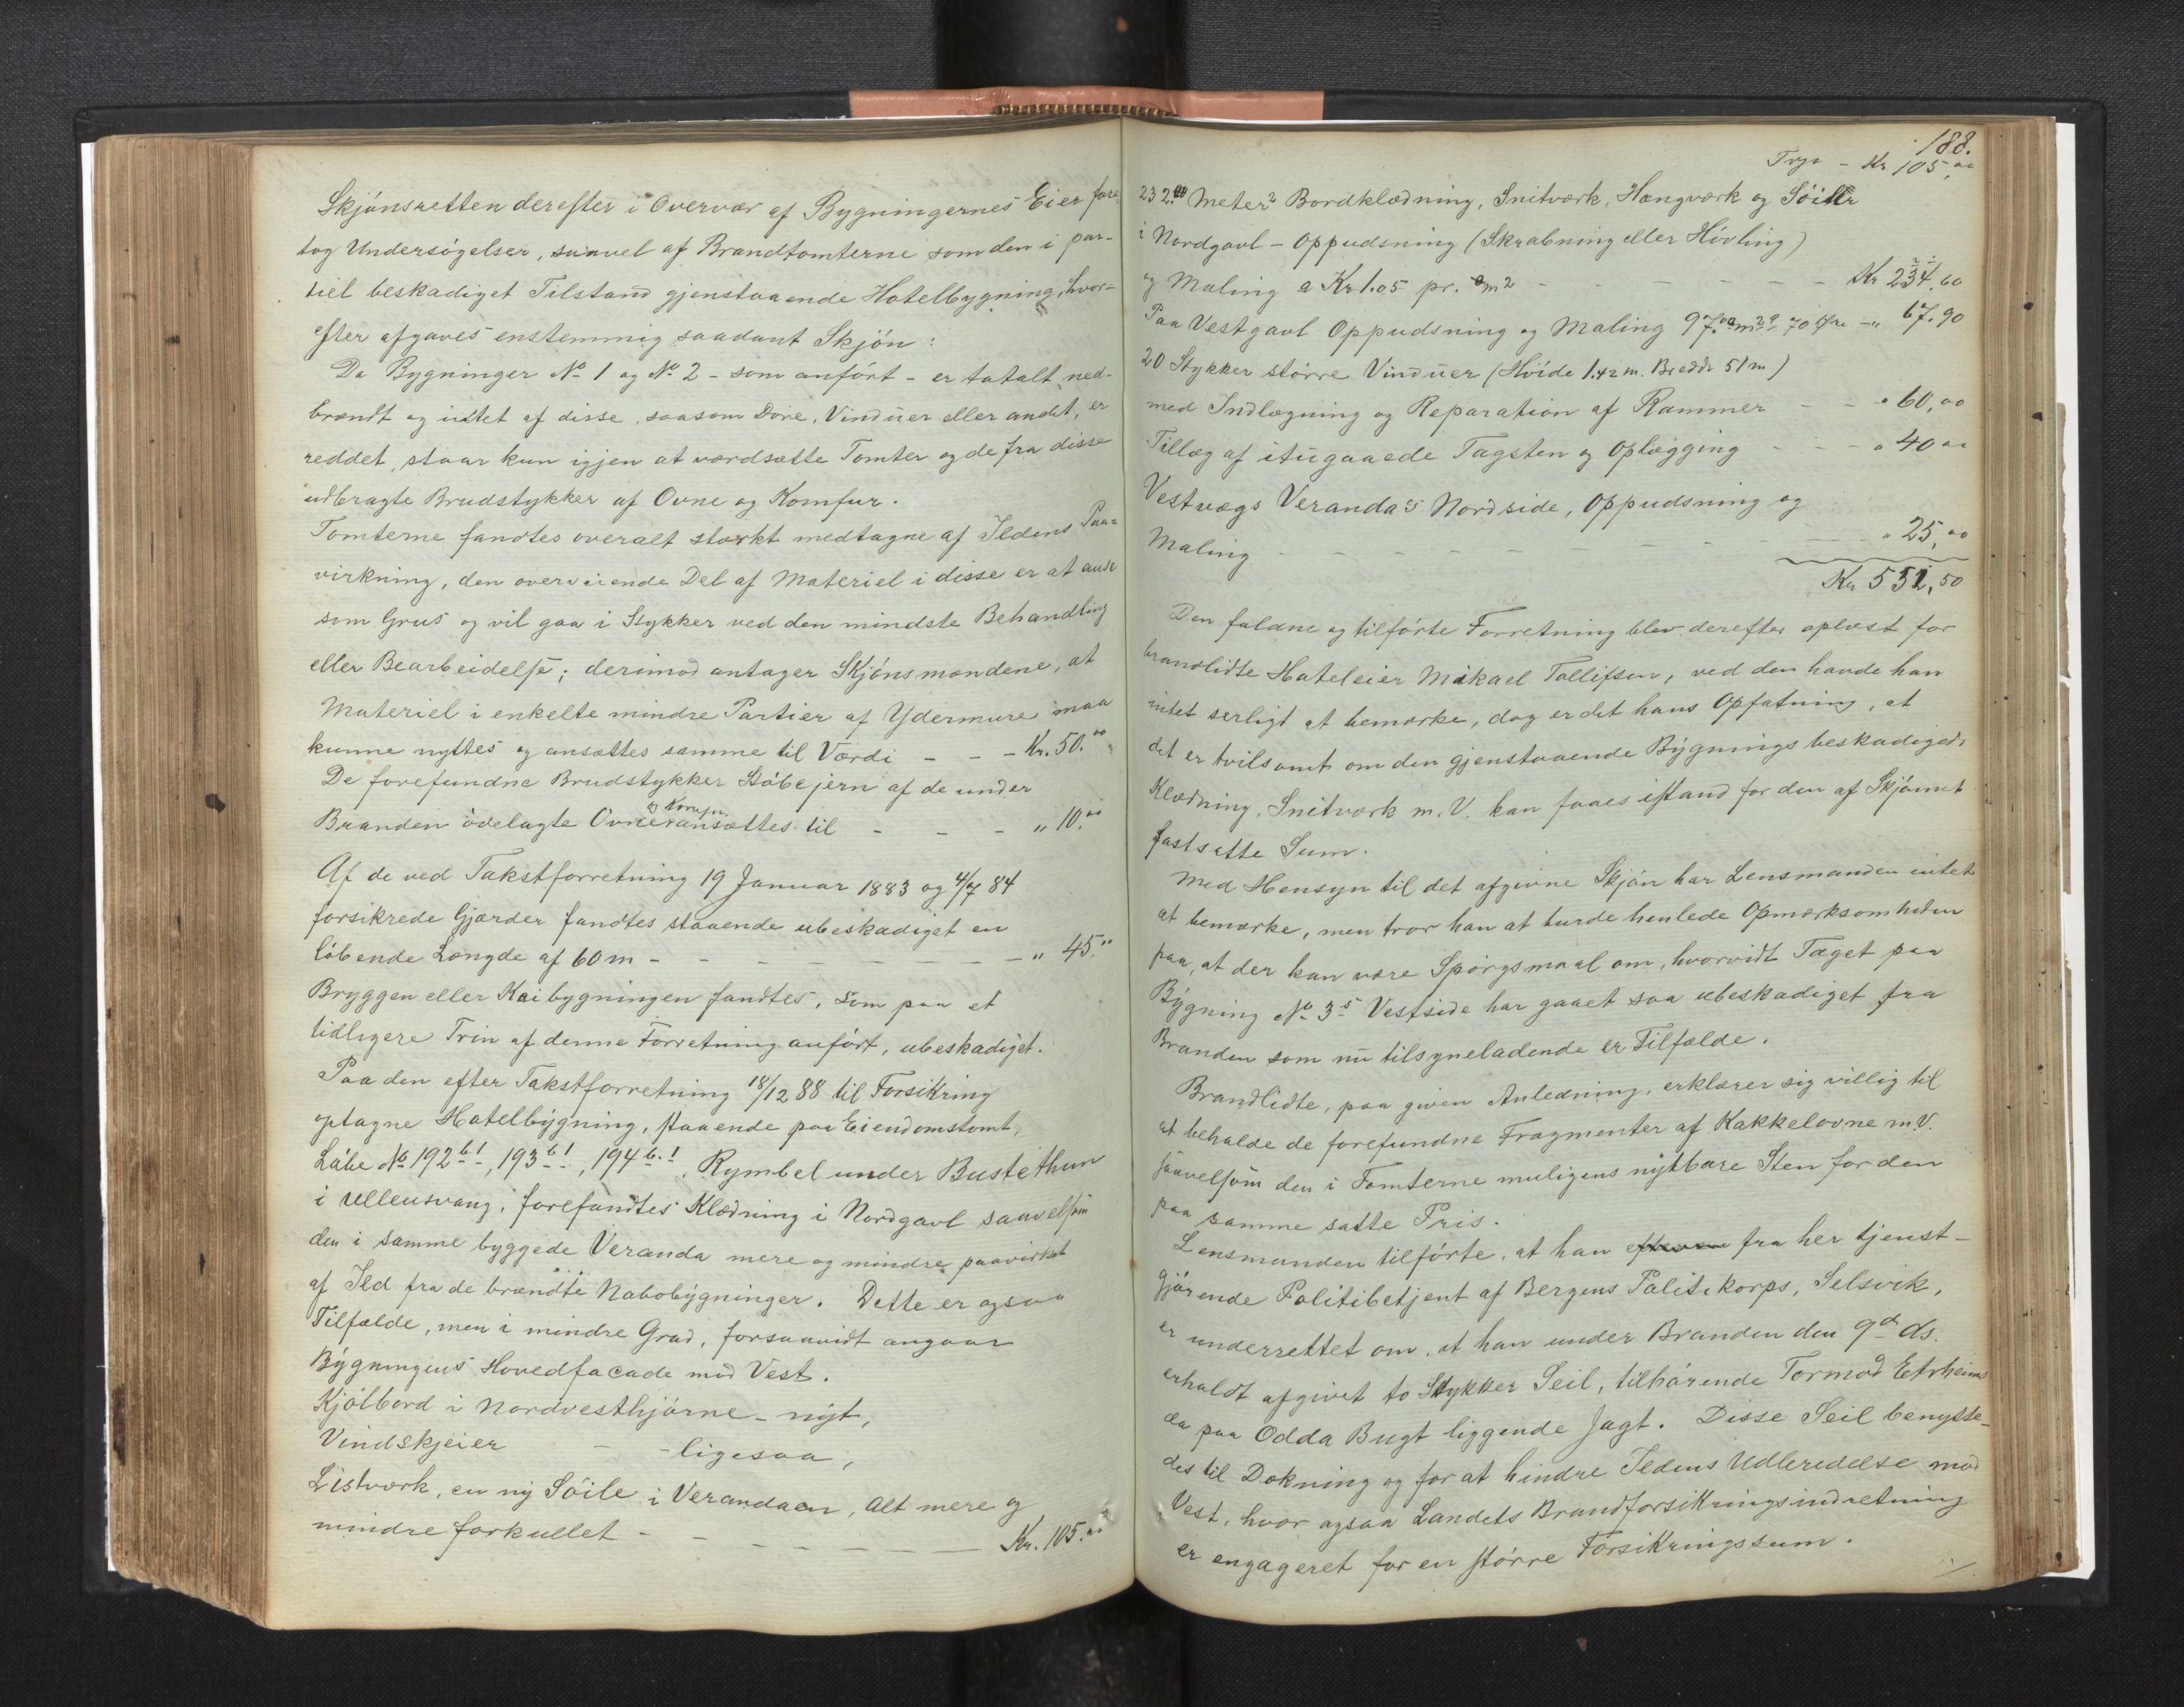 Skjönsretten derefter i Overvær af Bygningernes Eier fore-
tog Undersögelser, saavel af Brandtomterne som den i par-
tiel beskadiget Tilstand gjenstaaende Hotelbygning, hvor-
efter afgaves enstemmig saadant Skjön:
Da Bygninger No 1 og No 2 - som anfört - er totalt ned-
brændt og intet af disse, saasom Döre, Vinduer eller andet, er
reddet, staar kun igjen at værdsætte Tomter og de fra disse
udbragte Brudstykker af Ovne og Komfur.
Tomterne fandtes overalt stærkt medtagne af Ildens Paa-
virkning, den overveiende Del af Materiel i disse er at anse
som Grus og vil gaa i Stykker ved den mindste Behandling
eller Bearbeidelse; derimod antager Skjönsmændene, at
Materiel i enkelte mindre Partier af Ydermure maa
kunne nyttes og ansættes samme til Værdi - - - Kr. 50.00
De forefundne Brudstykker Stöbejern af de under
Branden ödelagte Ovne og Komfur ansættes til - - - " 10.00
Af de ved Takstforretning 19 Januar 1883 og 4/7 84
forsikrede Gjærder fandtes staaende ubeskadiget en
löbende Længde af 60 m - - - - - - - " 45."
Bryggen eller Kaibygningen fandtes, som paa et
tidligere Trin af denne Forretning anfört, ubeskadiget.
Paa den efter Takstforretning 18/12 88 til Forsikring
optagne Hotelbygning, staaende paa Eiendomstomt,
Löbe No 192 b 1, 193 b 1, 194 b. 1, Rymbel under Bustethun
i Ullensvang, forefandtes Klædning i Nordgavl saavelsom
den i samme byggede Veranda mere og mindre paavirket
af Ild fra de brændte Nabobygninger. Dette er ogsaa
Tilfælde, men i mindre Grad, forsaavidt angaar
Bygningens Hovedfacade mod Vest.
Kjölbord i Nordvesthjörne - nyt,
Vindskjeier - - ligesaa,
Listværk, en ny Söile i Verandaen, alt mere og
mindre forkullet - - - - - - - Kr. 105.00
188.
Trsp - Kr 105,00
232.00 Meter2 Bordklædning, Snitværk, Hængværk og Söiler
i Nordgavl - Oppudsning (Skrabning eller Hövling)
og Maling a Kr 1.05 pr. m2 - - - - - - Kr 234,60
Paa Vestgavl Oppudsning og Maling 97.00 m2 a 70 Øre - " 67.90
20 Stykker större Vinduer (Höide 1.42 m. Bredde 51 m)
med Indlægning og Reparation af Rammer - - " 60,00
Tillæg af itugaaede Tagsten og Oplægging - - " 40 00
Vestvægs Veranda's Nordside, Oppudsning og
Maling - - - - - - - - " 25,00
Kr 532,50
Den faldne og tilförte Forretning blev derefter oplæst for
brandlidte Hoteleier Mikael Tollefsen, ved den havde han
intet særligt at bemærke, dog er det hans Opfatning, at
det er tvilsomt om den gjenstaaende Bygnings beskadigede
Klædning, Snitværk m. V. kan faaes istand for den af Skjönnet
fastsatte Sum.
Med Hensyn til det afgivne Skjön har Lensmanden intet
at bemærke, men tror han at burde henlede Opmærksomheden
paa, at der kan være Spörgsmaal om, hvorvidt Taget paa
Bygning No 3s Vestside har gaaet saa ubeskadiget fra
Branden som nu tilsyneladende er Tilfælde.
Brandlidte, paa given Anledning, erklærer sig villig til
at beholde de forefundne Fragmenter af Kakkelovne m.V.
saavelsom den i Tomterne muligens nytbare Sten for den
paa samme satte Pris.
Lensmanden tilförte, at han fra her tjenst-
gjörende Politibetjent af Bergens Politikorps, Selsvik,
er underrettet om, at han under Branden den 9de ds.
erholdt afgivet to Stykker Seil, tilhörende Tormod Eitrheims
da paa Odda Bugt liggende Jagt. Disse Seil benytte-
des til Dækning og for at hindre Ildens Udbredelse mod
Vest, hvor ogsaa Landets Brandforsikringsindretning
er engageret for en större Forsikringssum.